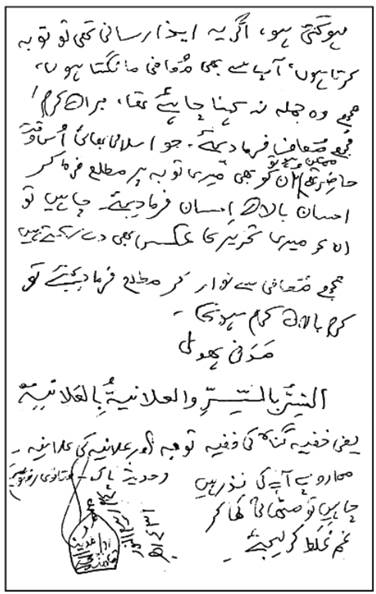 ہوگئی ہو، اگر یہ ایذا رسانی تھی تو توبہ
کرتا ہوں، آپ سے بھی مُعافی مانگتا ہوں،
مجھے وہ جملہ نہ کہنا چاہیئے تھا، براہِ کرم!
مجھے مُعاف فرما دیجئے۔ جو اسلامی بھائی اُس وقت
حاضر تھے ممکن ہو تو ان کو بھی میری توبہ پر مطلع فرما کر
احسان بالائے احسان فرما دیجئے۔ چاہیں تو
ان کو میری تحریر کا عکس بھی دے سکتے ہیں
مجھے مُعافی سے نواز کر مطلع فرما دیجئے تو
کرم بالائے کرم ہوگا۔
السِّرُّ بِالسِّرِّ والعلانیۃُ بِالعَلانِیۃِ
یعنی خفیہ گناہ کی خفیہ توبہ اور علانیہ کی علانیہ۔
روپے آپ کی نذر ہیں
(حدیثِ پاک۔ فتاوی رضویہ)
چاہیں تو مٹھائی کھا کر
غم غلط کر لیجئے۔